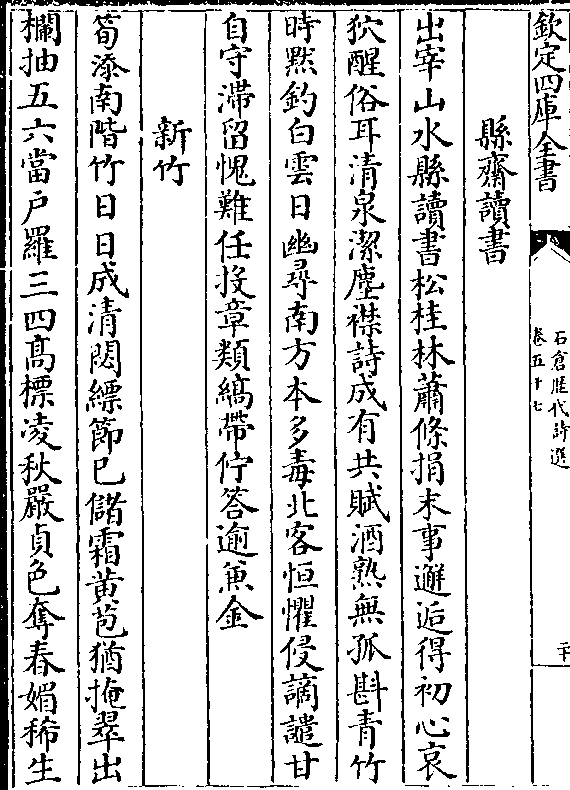 欽定四庫全書
石倉歷代詩選
卷五十七
二十
縣齋讀書
出宰山水縣讀書松桂林蕭條捐末事邂逅得初心哀
狖醒俗耳清泉潔塵襟詩成有共賦酒熟無孤斟青竹
時黙釣白雲日幽尋南方本多毒北客恒懼侵謫譴甘
自守滯留愧難任投章類縞帶佇答逾兼金
新竹
筍添南階竹日日成清閟縹節已儲霜黄苞猶掩翠出
欄抽五六當戶羅三四髙標凌秋嚴貞色奪春媚稀生